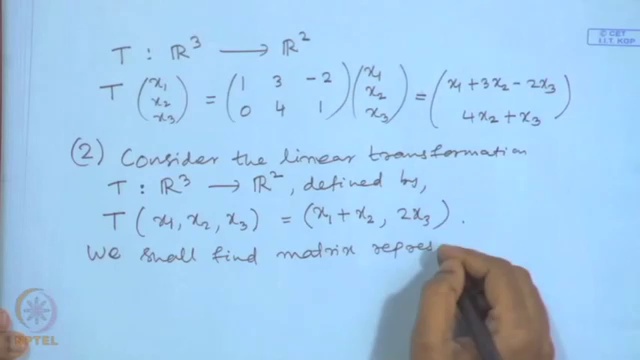 © CET
I.I.T. KGP
T : ℝ³ ⟶ ℝ²
T (x₁ x₂ x₃) = (1 3 -2 0 4 1) (x₁ x₂ x₃) = (x₁ + 3x₂ - 2x₃ 4x₂ + x₃)
(2) Consider the linear transformation
T : ℝ³ ⟶ ℝ², defined by,
T (x₁, x₂, x₃) = (x₁ + x₂, 2x₃).
We shall find matrix repres
NPTEL